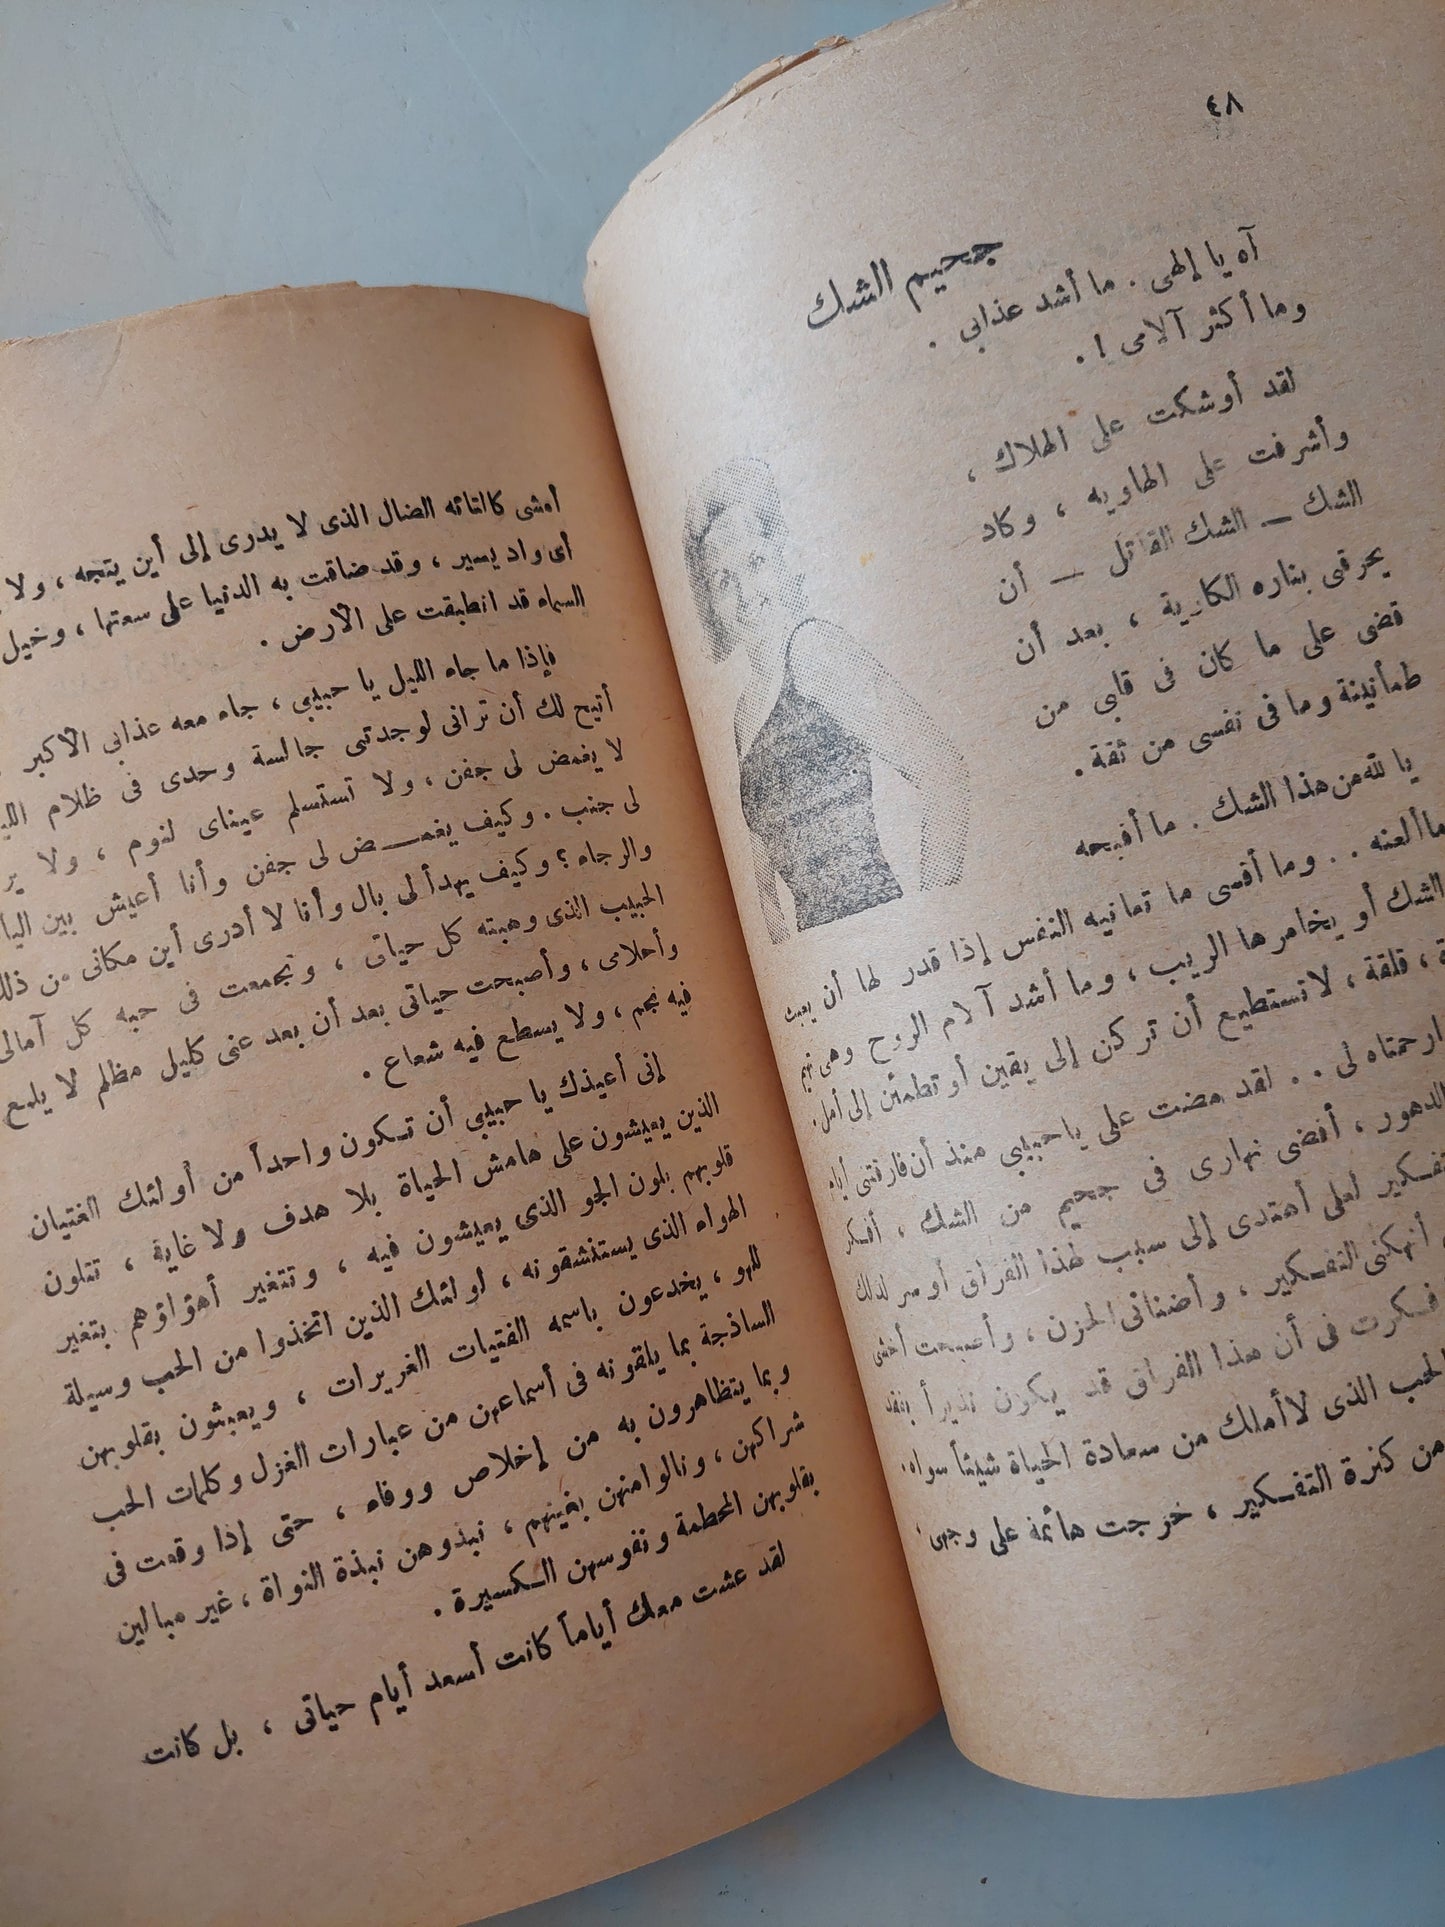 ٤٨
جحيم الشك
آه يا إلهى . ما أشد عذابى .
وما أكثر آلامى ! .
لقد أوشكت على الهلاك ،
وأشرفت على الهاويه ، وكاد
الشك — الشك القاتل — أن
يحرقنى بناره الكاوية ، بعد أن
قضى على ما كان فى قلبى من
طمأنينة وما فى نفسى من ثقة .
يا لله من هذا الشك . ما أقبحه
ما ألعنه . . وما أقسى ما تعانيه النفس إذا قدر لها أن يعبث
الشك أو يخامرها الريب ، وما أشد آلام الروح وهى تهيم
، قلقة ، لا تستطيع أن تركن إلى يقين أو تطمئن إلى أمل .
ارحمتاه لى . . لقد مضت على يا حبيبى منذ أن فارقتنى أيام
الدهور ، أقضى نهارى فى جحيم من الشك ، أفكر
لعلى أهتدى إلى سبب لهذا الفراق أو سر لذلك
أنهكنى التفكير ، وأضنانى الحزن ، وأصبحت أخشى
فكرت فى أن هذا الفراق قد يكون نذيراً بفقد
الحب الذى لا أملك من سعادة الحياة شيئاً سواه .
من كثرة التفكير ، خرجت هائمة على وجهى .
أمشى كالتائه الضال الذى لا يدرى إلى أين يتجه ، ولا
أى واد يسير ، وقد ضاقت به الدنيا على سعتها ، وخيل
السماء قد انطبقت على الأرض .
فإذا ما جاء الليل يا حبيبى ، جاء معه عذابى الأكبر
أتيح لك أن ترانى لوجدتنى جالسة وحدى فى ظلام
لا يغمض لى جفن ، ولا تستسلم عيناى لنوم ، ولا
لى جنب . وكيف يغمض لى جفن وأنا أعيش بين
والرجاء ؟ وكيف يهدأ لى بال وأنا لا أدرى أين مكانى من
الحبيب الذى وهبته كل حياتى ، وتجمعت فى حبه كل آمالى
وأحلامى ، وأصبحت حياتى بعد أن بعد عنى كليل مظلم لا يلمع
فيه نجم ، ولا يسطع فيه شعاع .
إنى أعيذك يا حبيبى أن تكون واحداً من أولئك الفتيان
الذين يعيشون على هامش الحياة بلا هدف ولا غاية ، تتلون
قلوبهم بلون الجو الذى يعيشون فيه ، وتتغير أهواؤهم بتغير
الهواء الذى يستنشقونه ، أولئك الذين اتخذوا من الحب وسيلة
للهو ، يخدعون باسمه الفتيات الغريرات ، ويعبثون بقلوبهن
الساذجة بما يلقونه فى أسماعهن من عبارات الغزل وكلمات الحب
وبما يتظاهرون به من إخلاص ووفاء ، حتى إذا وقعت فى
شراكهن ، ونالوا منهن بغيتهم ، نبذوهن نبذة النواة ، غير مبالين
بقلوبهن المحطمة ونفوسهن الكسيرة .
لقد عشت معك أياماً كانت أسعد أيام حياتى ، بل كانت